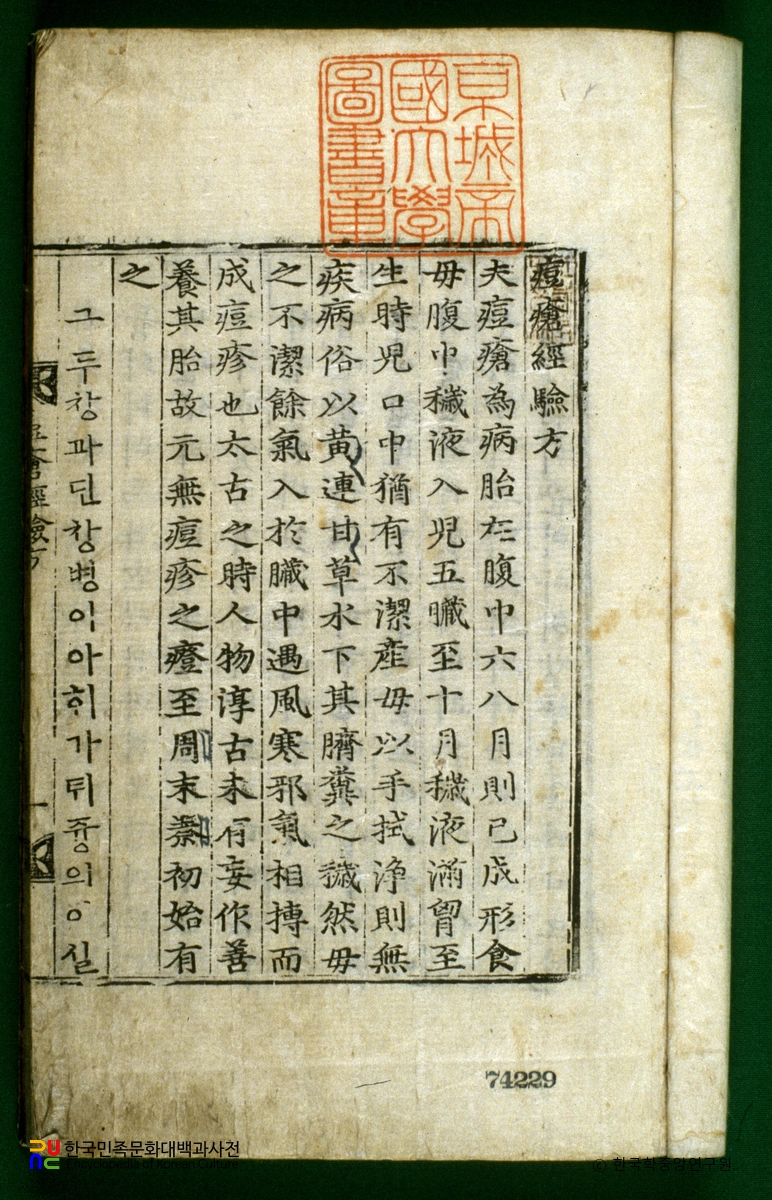 京城帝
國大學
圖書章
痘瘡經驗方
夫痘瘡為病胎在腹中六八月則已成形食
毋腹中穢液入兒五臟至十月穢液滿胃至
生時兒口中猶有不潔産毋以手拭淨則無
疾病俗以黄連甘草水下其臍糞之穢然毋
之不潔餘氣入於臟中遇風寒邪氣相搏而
成痘疹也太古之時人物淳古未有妄作善
養其胎故元無痘疹之證至周末秦初始有
之
그두창과딘창병이아ᄒᆡ가뒤쥬ᇰ의이실
瘡經驗方
一
74229
한국민족문화대백과사전
Encyclopedia of Korean Culture
© 한국학중앙연구원